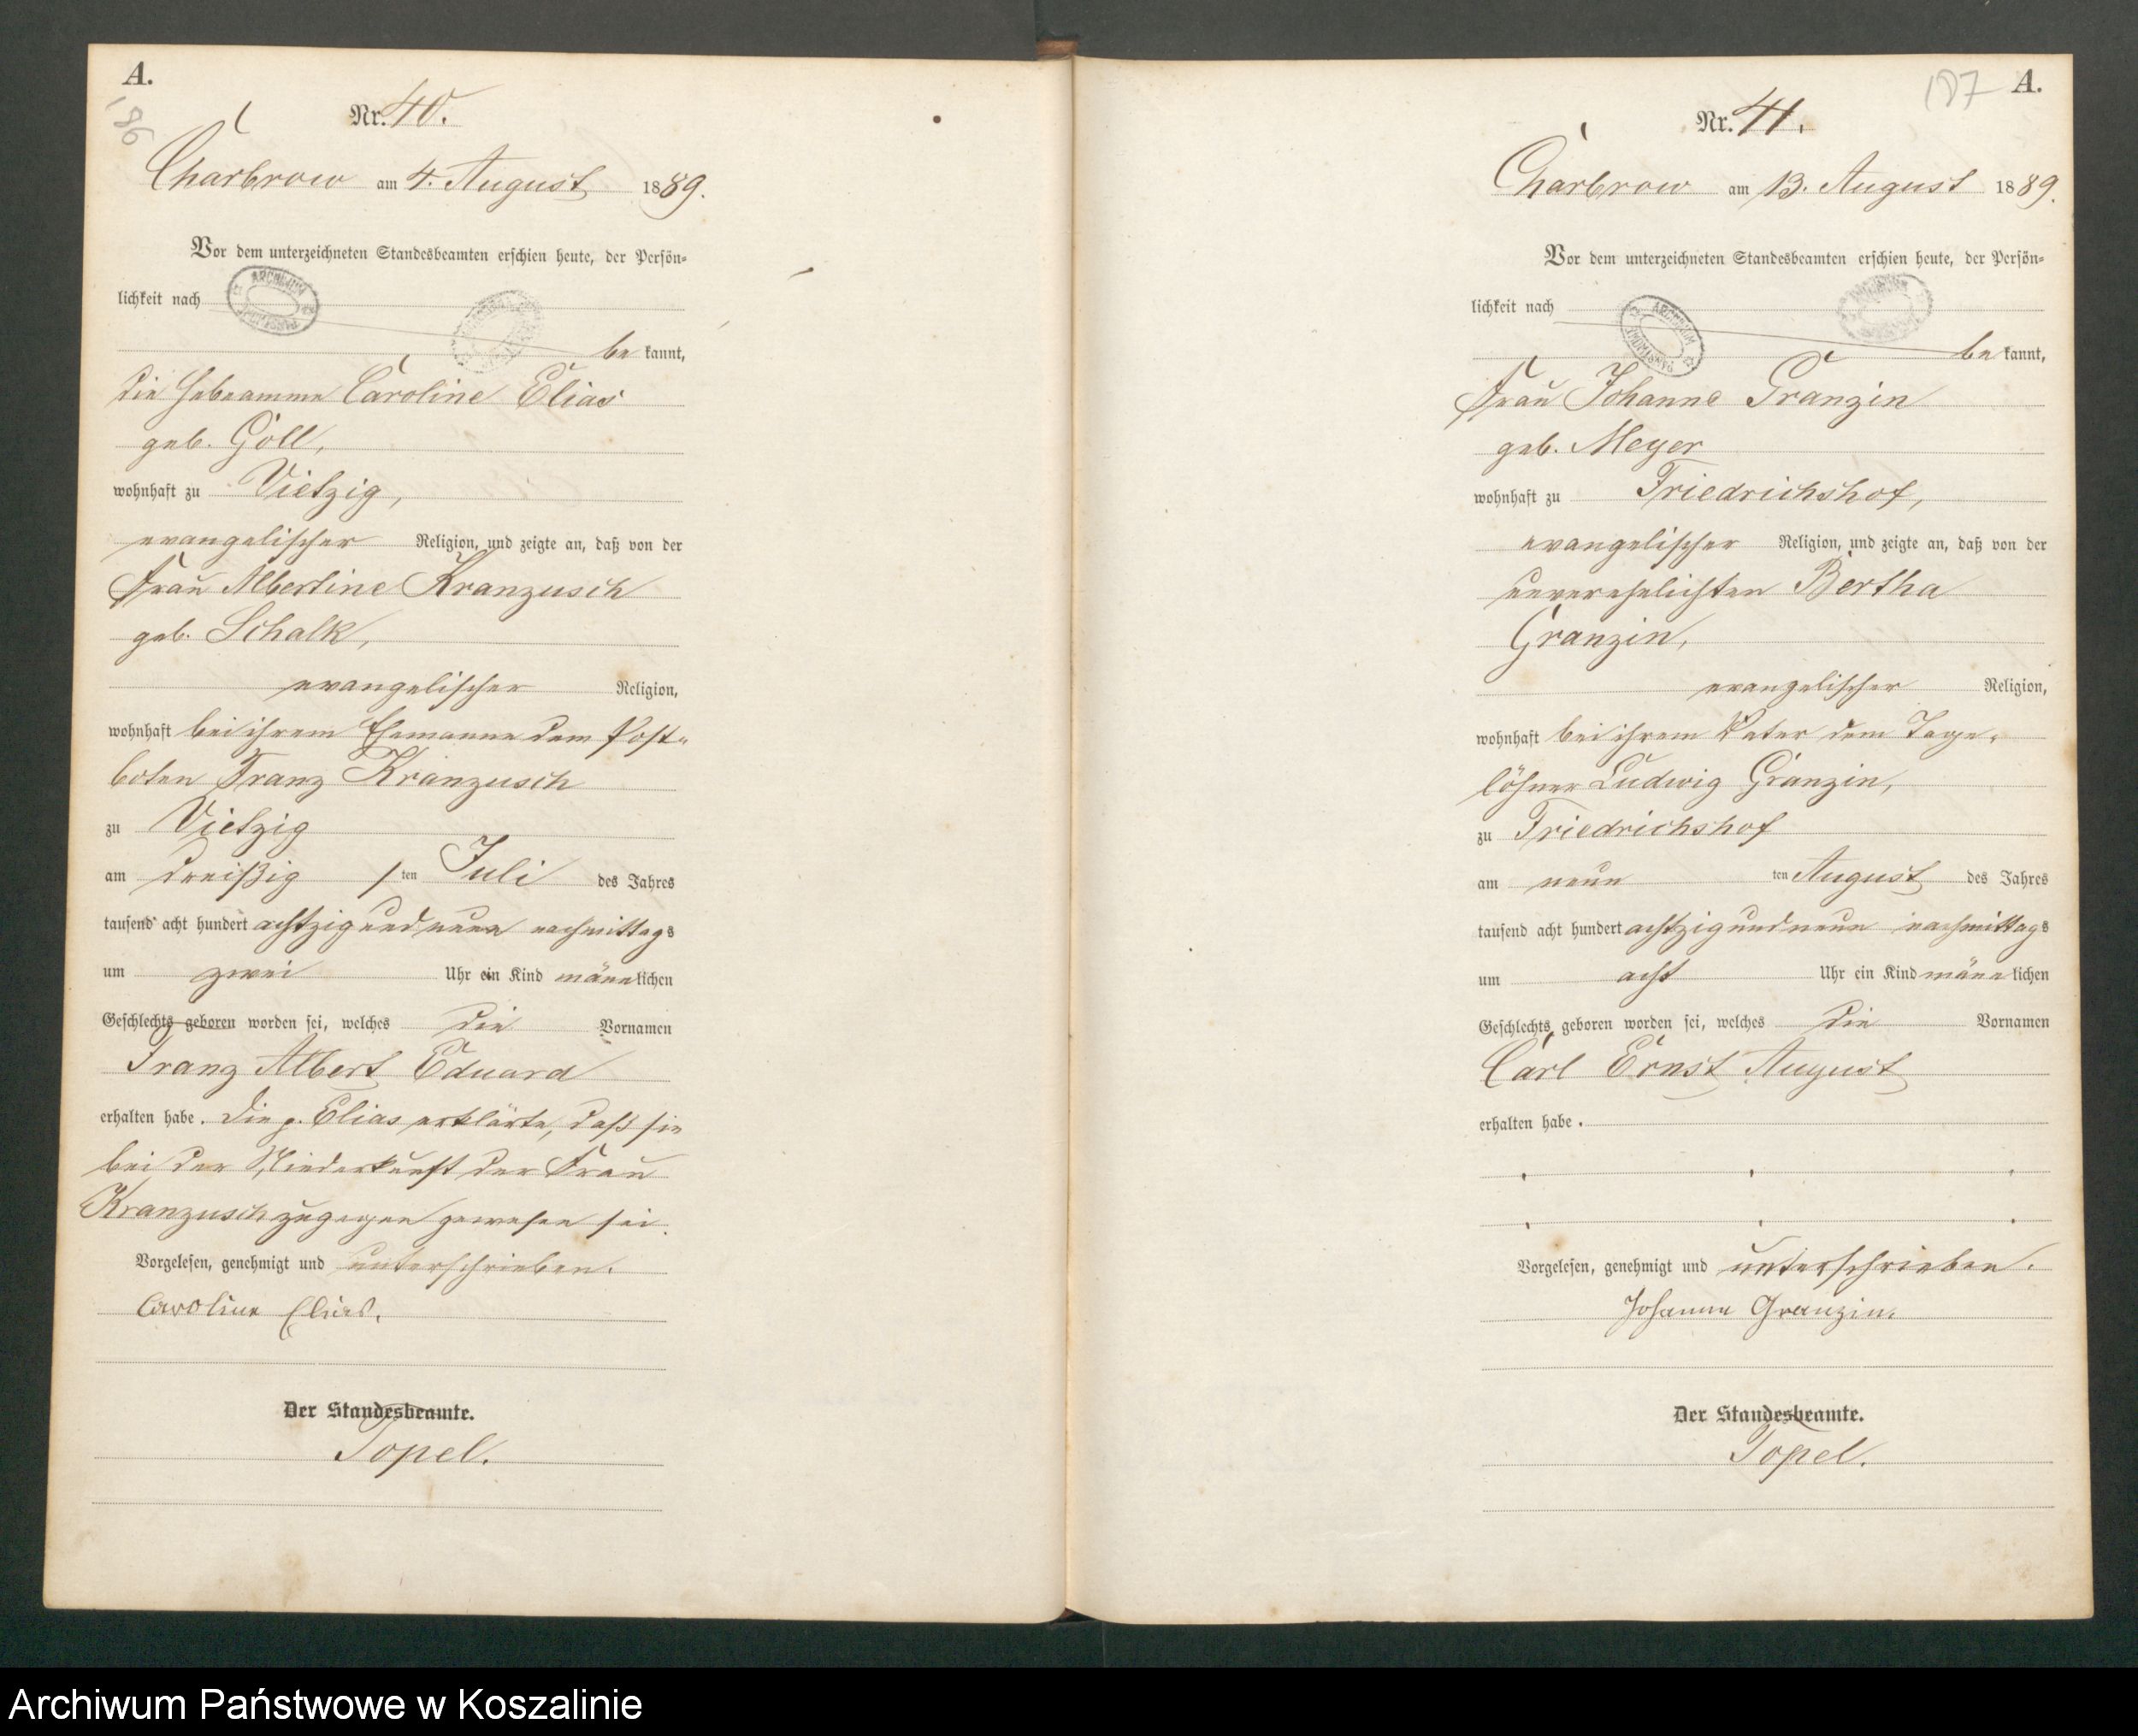 A.
186
Nr. 40.
Charbrow am 4. August 1889.
Vor dem unterzeichneten Standesbeamten erschien heute, der Persön-
lichkeit nach
be kannt,
die Hebeamme Caroline Elias
geb. Göll,
wohnhaft zu Vietzig,
evangelischer Religion, und zeigte an, daß von der
Frau Albertine Kranzusch
geb. Schalk,
evangelischer Religion,
wohnhaft bei ihrem Ehemanne dem Post-
boten Franz Kranzusch
zu Vietzig
am dreißig sten Juli des Jahres
tausend acht hundert achtzig und neun nachmittags
um zwei Uhr ein Kind männlichen
Geschlechts geboren worden sei, welches die Vornamen
Franz Albert Eduard
erhalten habe. Die p. Elias erklärte, daß sie
bei der Niederkunft der Frau
Kranzusch zugegen gewesen sei.
Vorgelesen, genehmigt und unterschrieben.
Caroline Elias.
Der Standesbeamte.
Topel.
187
A.
Nr. 41.
Charbrow am 13. August 1889.
Vor dem unterzeichneten Standesbeamten erschien heute, der Persön-
lichkeit nach
be kannt,
Frau Johanne Granzin
geb. Meyer
wohnhaft zu Friedrichshof,
evangelischer Religion, und zeigte an, daß von der
unverehelichten Bertha
Granzin,
evangelischer Religion,
wohnhaft bei ihrem Vater dem Tage-
löhner Ludwig Granzin,
zu Friedrichshof
am neun ten August des Jahres
tausend acht hundert achtzig und neun nachmittags
um acht Uhr ein Kind männlichen
Geschlechts geboren worden sei, welches die Vornamen
Carl Ernst August
erhalten habe.
Vorgelesen, genehmigt und unterschrieben.
Johanne Granzin.
Der Standesbeamte.
Topel.
Archiwum Państwowe w Koszalinie